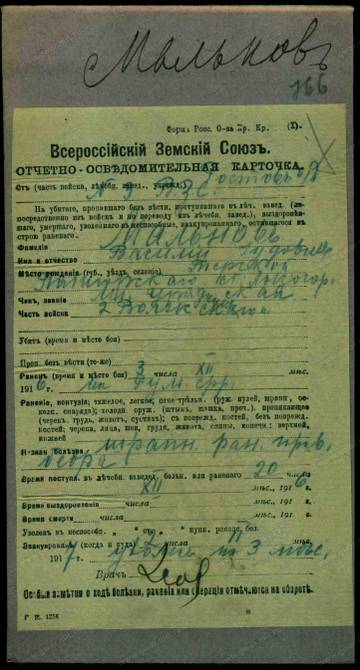 Мальковъ
166
Форма Росс. О-ва Кр. Кр. (X).
Всероссійскій Земскій Союзъ.
ОТЧЕТНО-ОСВѢДОМИТЕЛЬНАЯ КАРТОЧКА.
Отъ (часть войска, лѣчебн. завед., учрежд.) Ростовъ н/Д
ВЗС
На убитаго, пропавшаго безъ вѣсти, поступившаго въ лѣч. завед. (не-
посредственно изъ войскъ и по переводу изъ лѣчебн. завед.), выздоровѣв-
шаго, умершаго, уволеннаго въ неспособные, эвакуированнаго, оставшагося въ
строю раненаго.
Фамилія Мальковъ
Имя и отчество Василій
Мѣсто рожденія (губ., уѣздъ, селеніе) Терской
Пятигорскаго
Чинъ, званіе мл. урядн.
Часть войска 2
Убитъ (время и мѣсто боя)
Проп. безъ вѣсти (то-же)
Раненъ (время и мѣсто боя) 3 XII
191 6 г. на Рум. фр.
Раненіе, контузія: тяжелое, легкое; огне-стрѣльн. (руж. пулей, шрапн., оскол. снаряда); холодн. оруж. (штык., шашка, проч.), проникающее
(череп., грудь, животъ, суставъ); съ поврежд. костей, безъ поврежд.
костей; черепа, лица, шеи, груди, живота, спины, конечн.: верхней,
нижней
Назван. болѣзни шрапн. ран. прав.
бедра
Время поступ. въ лѣчебн. завед. больн. или раненаго 20 числа
XII мѣс., 191 6 г.
Время выздоровленія числа мѣс., 191 г.
Время смерти числа мѣс., 191 г.
Уволенъ въ неспособн.
Эвакуированъ (когда и куда) 2 II
191 7 г. уволен на 3 мѣс.
Врачъ
Особыя замѣтки о ходѣ болѣзни, раненія или операціи отмѣчаются на оборотѣ.